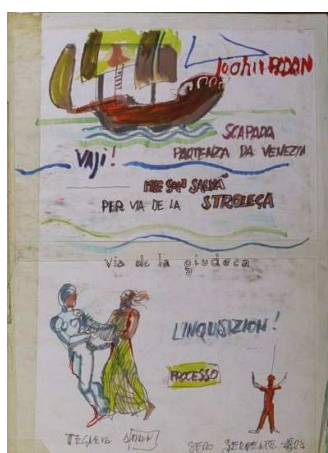 Johan PADAN
SCAPADA
VAJI!
PARTENZA DA VENEZIA
ME SON SALVÀ
PER VIA DE LA STROLEGA
Via de la giudeca
L'INQUISIZION!
PROCESSO